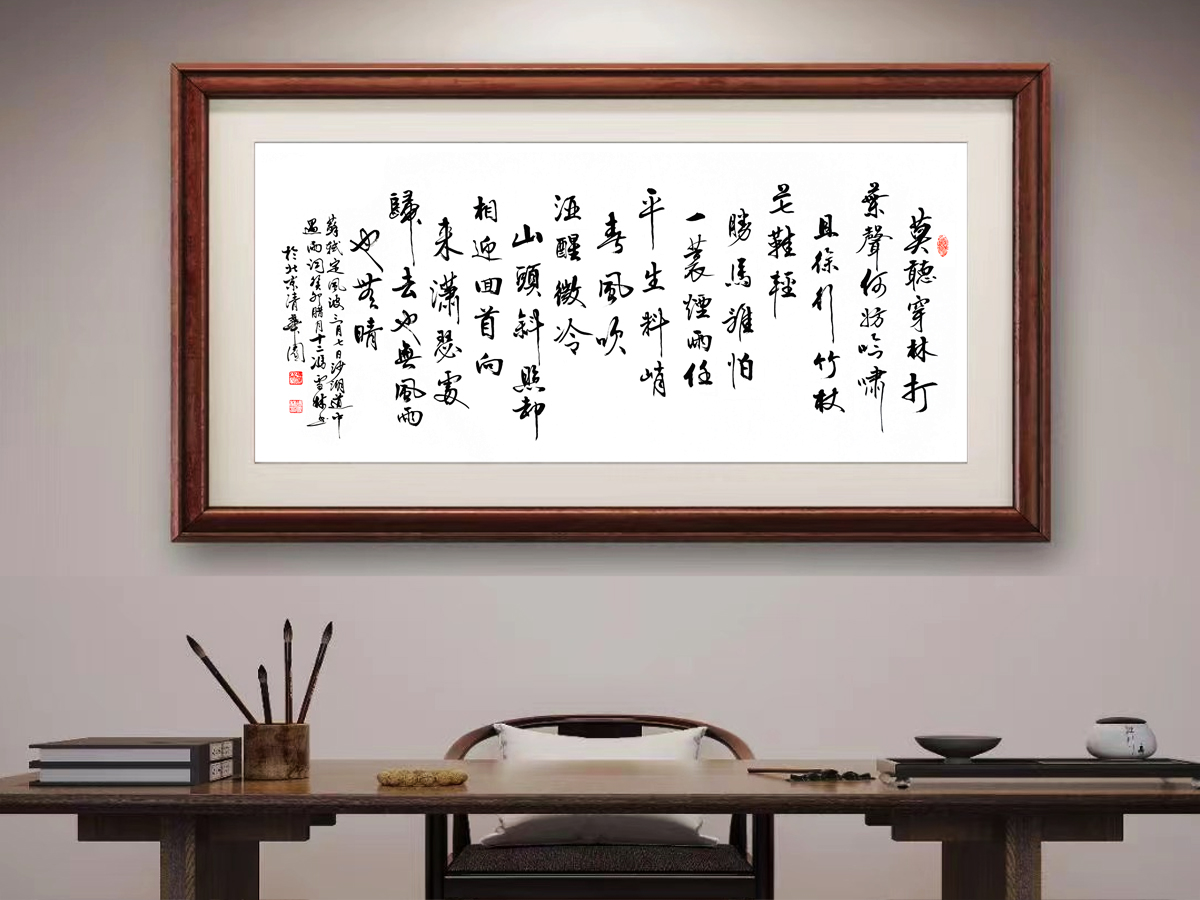 莫聽穿林打
葉聲何妨吟嘯
且徐行竹杖
芒鞋輕
勝馬誰怕
一蓑煙雨任
平生料峭
春風吹
酒醒微冷
山頭斜照却
相迎回首向
来瀟瑟處
歸去也無風雨
也無晴
蘇軾定風波三月七日沙湖道中
遇雨词癸卯腊月十二冯雪
於北京清華園